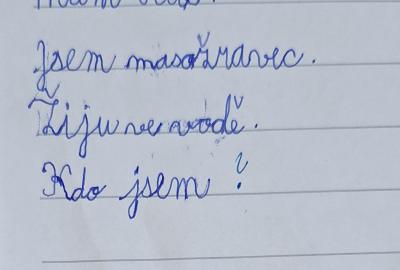 Jsem masožravec.
Žiju ve vodě.
Kdo jsem?